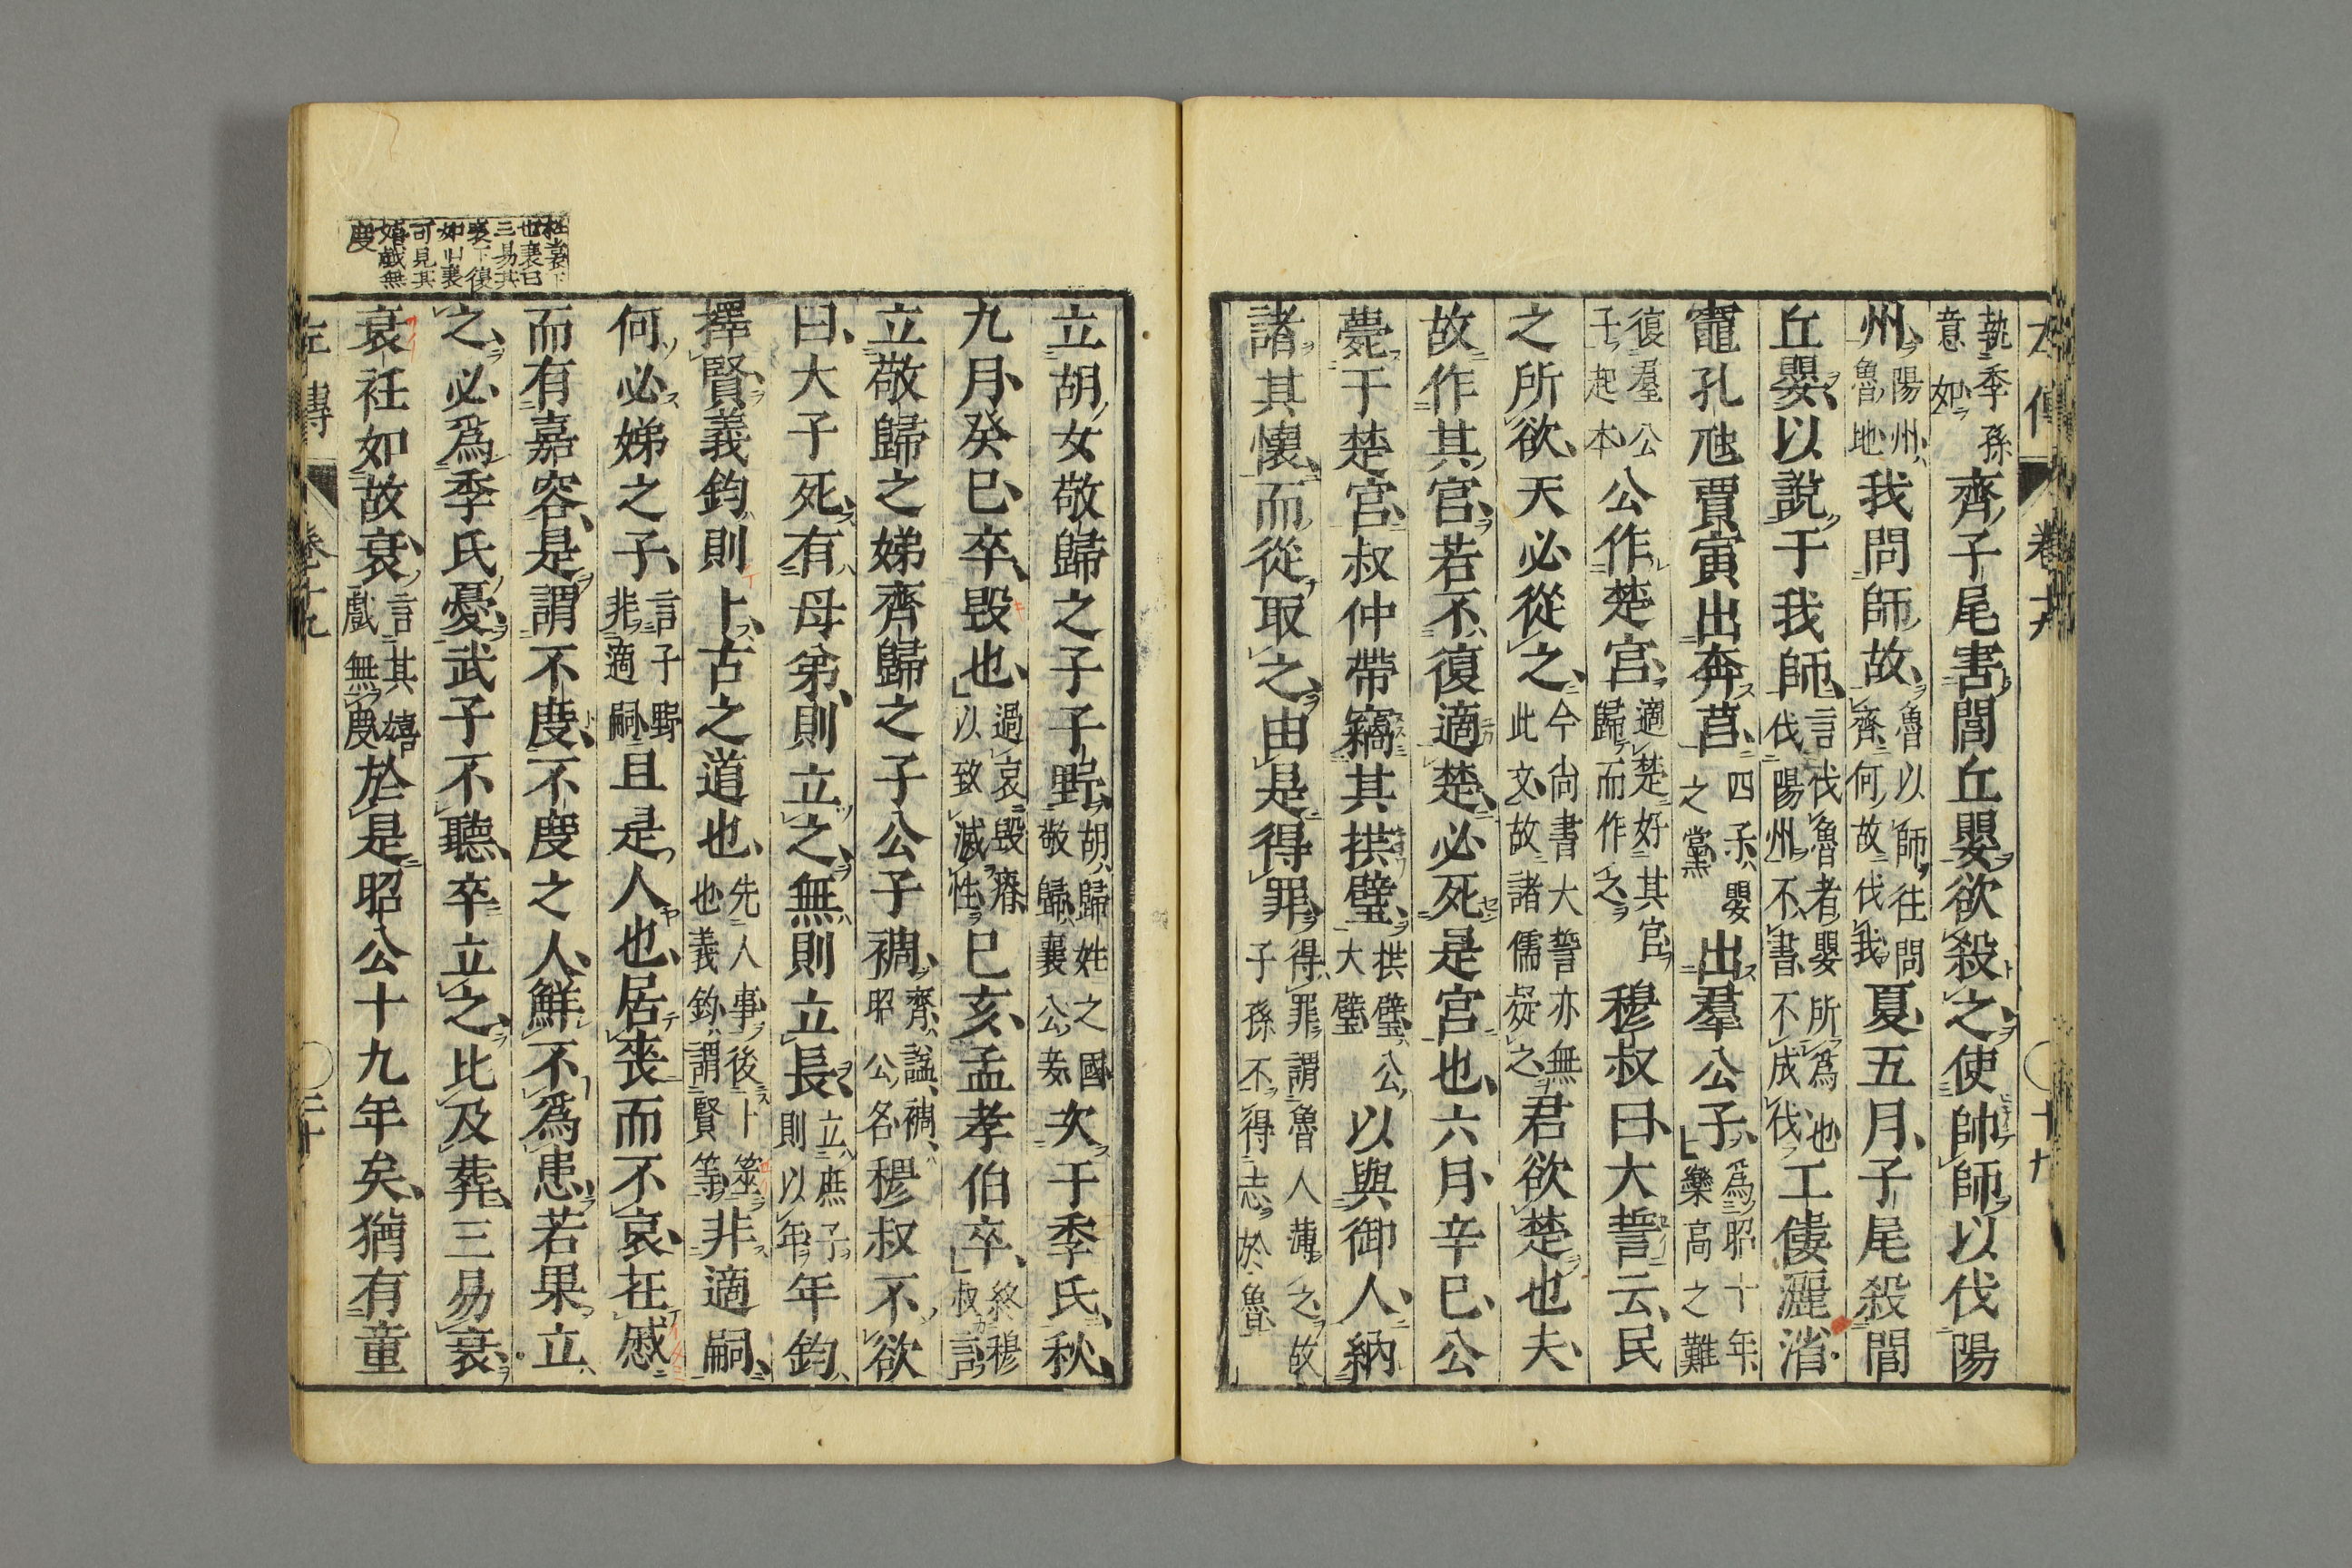 左傳 卷十九 ○十九
執季孫意如 齊子尾害閭丘嬰欲殺之使帥師以伐陽
州陽州魯地我問師故魯以師往問齊何故伐我夏五月子尾殺閭
丘嬰以說于我師言伐魯者嬰所爲也伐陽州不書不成伐工僂灑渻
竈孔虺賈寅出奔莒四子嬰之黨出羣公子爲昭十年欒高之難
復羣公子起本公作楚宮適楚好其宮歸而作之穆叔曰大誓云民
之所欲天必從之今尚書大誓亦無此文故諸儒疑之君欲楚也夫
故作其宮若不復適楚必死是宮也六月辛巳公
薨于楚宮叔仲帶竊其拱璧拱璧公大璧以與御人納
諸其懷而從取之由是得罪得罪謂魯人薄之故子孫不得志於魯
立胡女敬歸之子子野胡歸姓之國敬歸襄公妾次于季氏秋
九月癸巳卒毀也過哀毀瘠以致滅性己亥孟孝伯卒終穆叔言
立敬歸之娣齊歸之子公子裯齊謚裯昭公名穆叔不欲
曰大子死有母弟則立之無則立長立庶子則以年年鈞
擇賢義鈞則卜古之道也先人事後卜筮也義鈞謂賢等非適嗣
何必娣之子言子野非適嗣且是人也居喪而不哀在慼
而有嘉容是謂不度不度之人鮮不爲患若果立
之必爲季氏憂武子不聽卒立之比及葬三易衰
衰衽如故衰言其嬉戲無度於是昭公十九年矣猶有童
左傳 卷十九 ○二十
衽裳下
也衰已
三易其
裳下復
如旧衰
可見其
嬉戯無
度